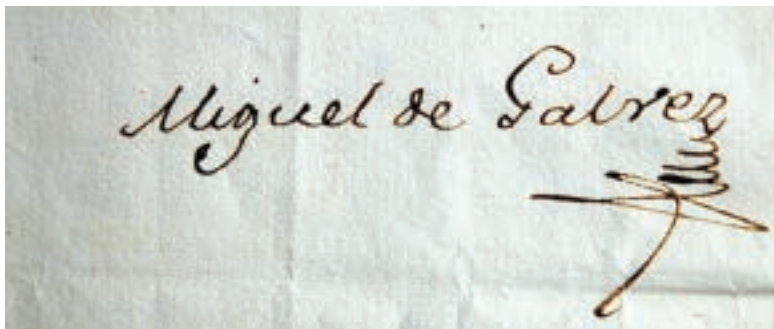 Miguel de Galvez